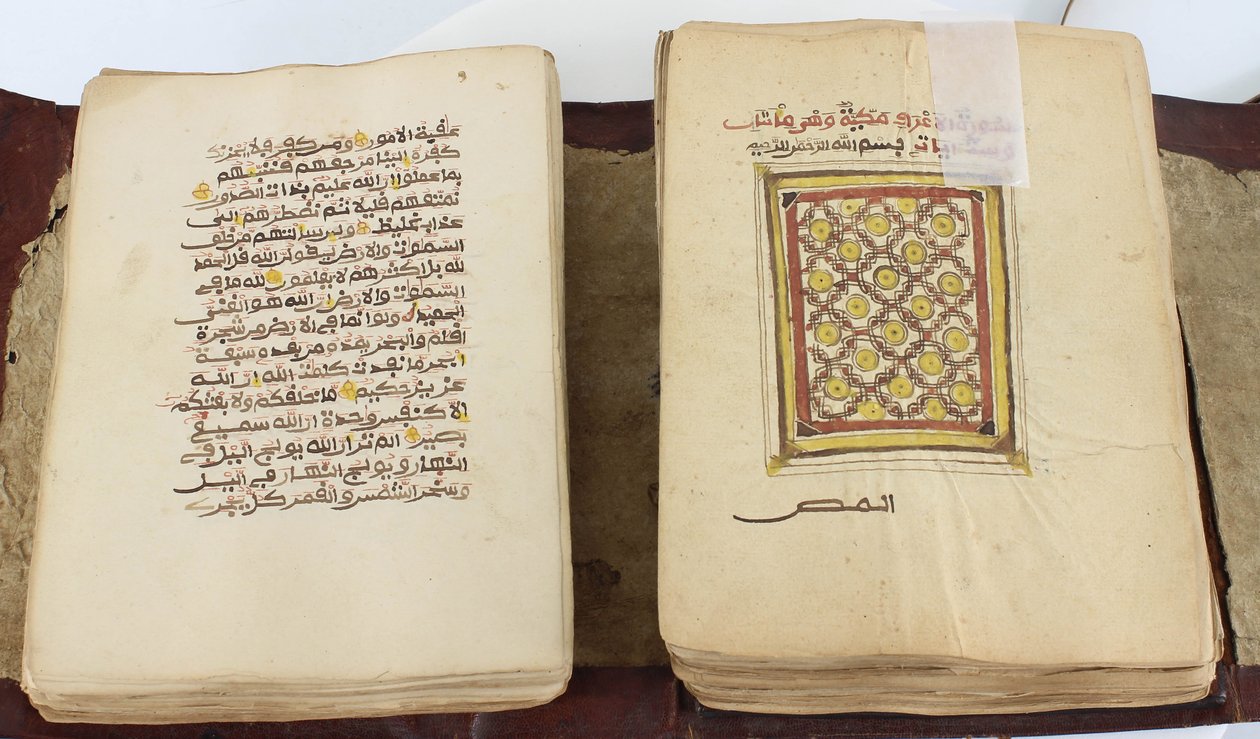 سورة الاعراف مكية وهي مائتان
وست ايات بسم الله الرحمن الرحيم
المص
عقبة الامور ومن كفر فلا يحزنك
كفره الينا مرجعهم فننبئهم
بما عملوا ان الله عليم بذات الصدور
نمتعهم قليلا ثم نضطرهم الى
عذاب غليظ ولئن سالتهم من خلق
السموات والارض ليقولن الله قل الحمد
لله بل اكثرهم لا يعلمون لله ما في
السموات والارض ان الله هو الغني
الحميد ولو انما في الارض من شجرة
اقلم والبحر يمده من بعده سبعة
ابحر ما نفدت كلمت الله ان الله
عزيز حكيم ما خلقكم ولا بعثكم
الا كنفس وحدة ان الله سميع
بصير الم تر ان الله يولج اليل في
النهار ويولج النهار في اليل
وسخر الشمس والقمر كل يجري